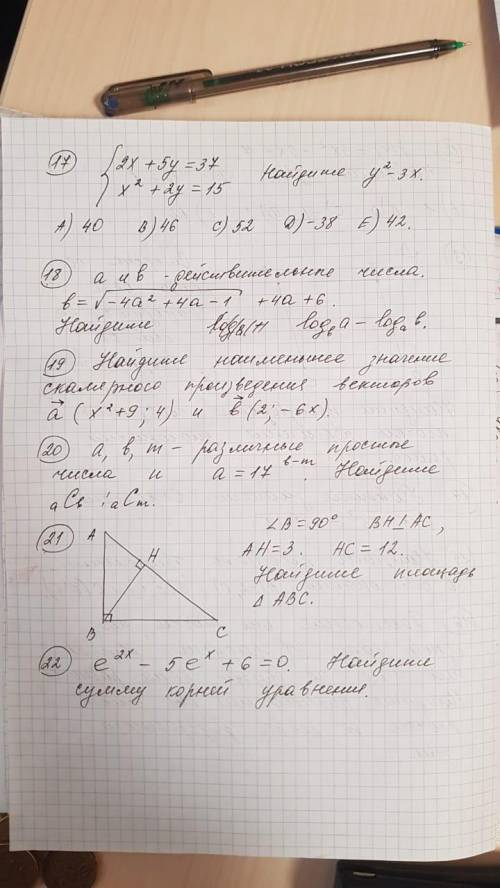 17 { 2x + 5y = 37
x² + 2y = 15 Найдите y² - 3x.
A) 40 B) 46 C) 52 D) -38 E) 42.
18 a и b - действительные числа.
b = √(-4a² + 4a - 1) + 4a + 6.
Найдите log_b a - log_a b.
19 Найдите наименьшее значение
скалярного произведения векторов
a⃗ (x² + 9; 4) и b⃗ (2; -6x).
20 a, b, m - различные простые
числа и a = 17^(b-m). Найдите
aCb : aCm.
21 A H B C ∠B = 90° BH ⊥ AC,
AH = 3. HC = 12.
Найдите площадь
Δ ABC.
22 e^(2x) - 5e^x + 6 = 0. Найдите
сумму корней уравнения.